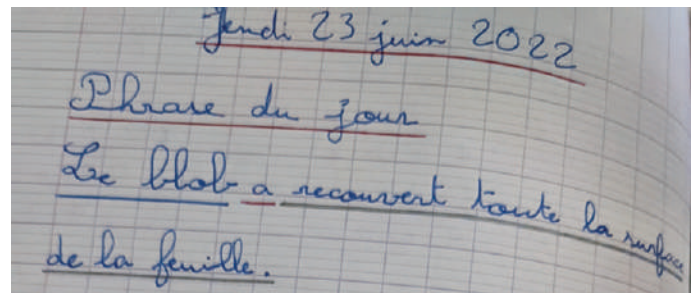 Jeudi 23 juin 2022
Phrase du jour
Le blob a recouvert toute la surface
de la feuille.